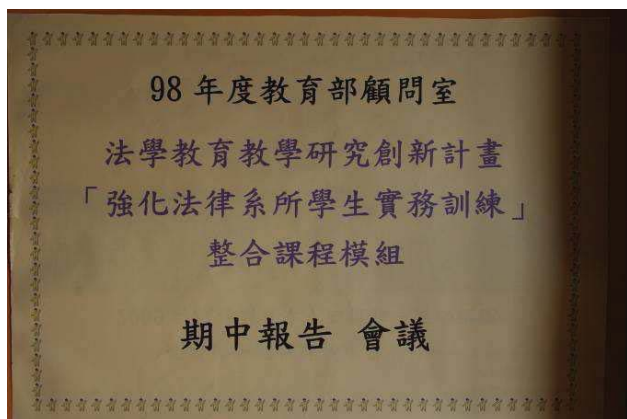 98 年度教育部顧問室
法學教育教學研究創新計畫
「強化法律系所學生實務訓練」
整合課程模組
期中報告 會議